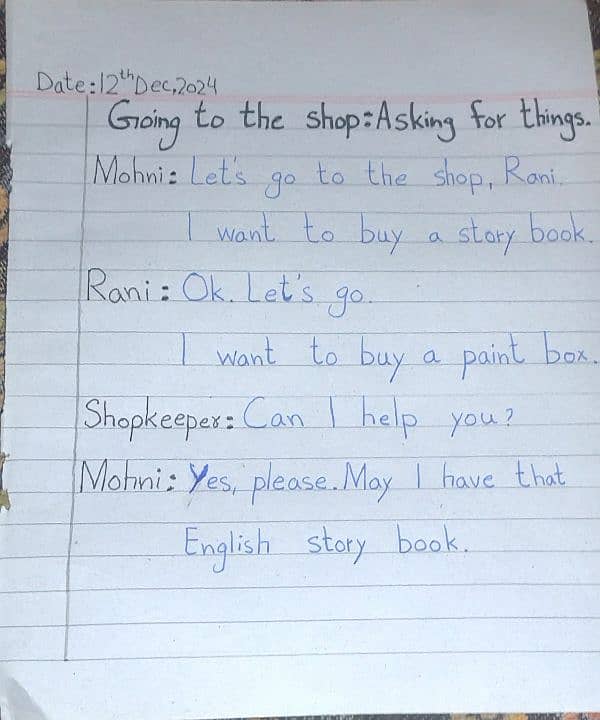 Date:12thDec,2024
Going to the shop:Asking for things.
Mohni: Let's go to the shop, Rani.
I want to buy a story book.
Rani: Ok. Let's go.
I want to buy a paint box.
Shopkeeper: Can I help you?
Mohni: Yes, please. May I have that
English story book.